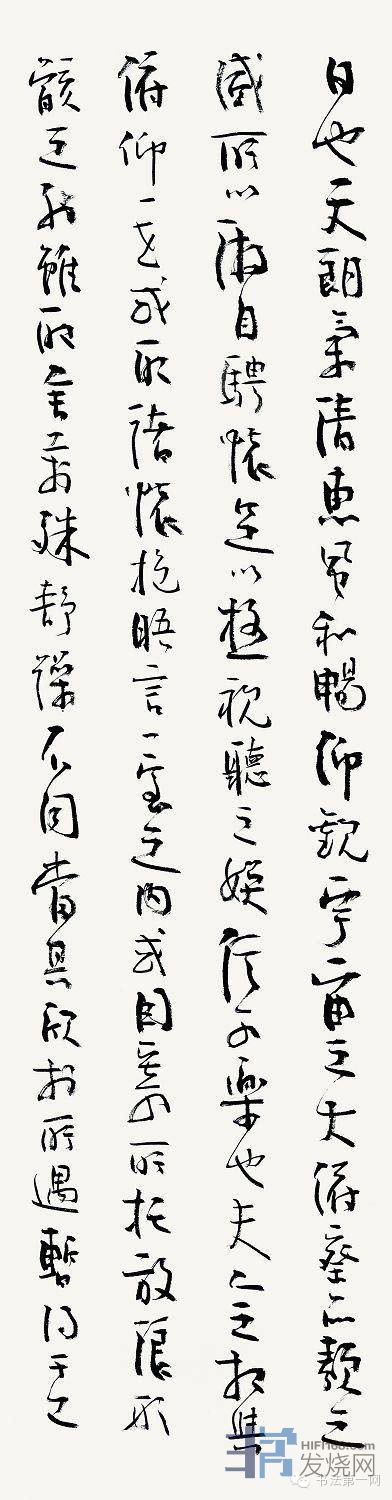 日也天朗氣清惠風和暢仰觀宇宙之大俯察品類之
盛所以遊目騁懷足以極視聽之娛信可樂也夫人之相與
俯仰一世或取諸懷抱晤言一室之內或因寄所托放浪形
骸之外雖取舍萬殊靜躁不同當其欣於所遇暫得於己
HIFI168.com
发烧网
书法第一网